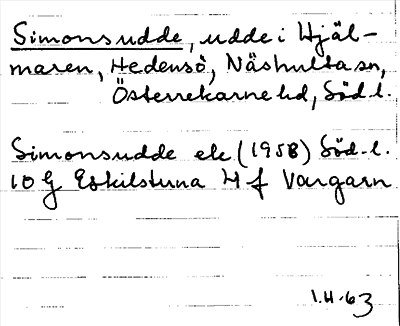 Simonsudde, udde i Hjäl-
maren, Hedensö, Näshulta sn,
Österrekarne hd, Söd.l.
Simonsudde ek (1958) Söd.l.
10 G Eskilstuna 4 f Vargarn
1.4.63